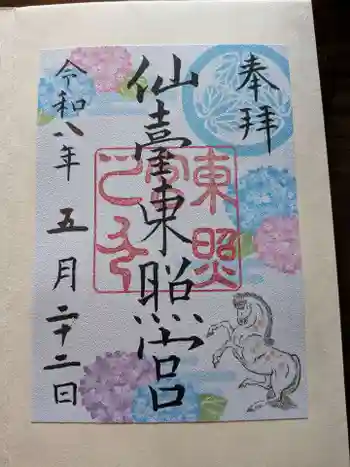 奉拝
仙臺東照宮
東照
令和八年 五月二十二日